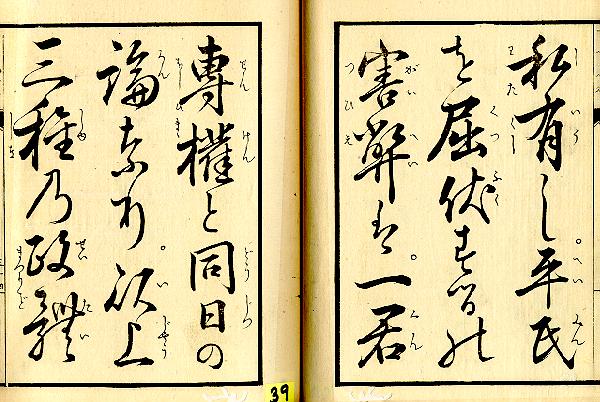 私有し平民
を屈伏する乃
害弊は一君
専権と同日の
論なり以上
三種乃政體
39